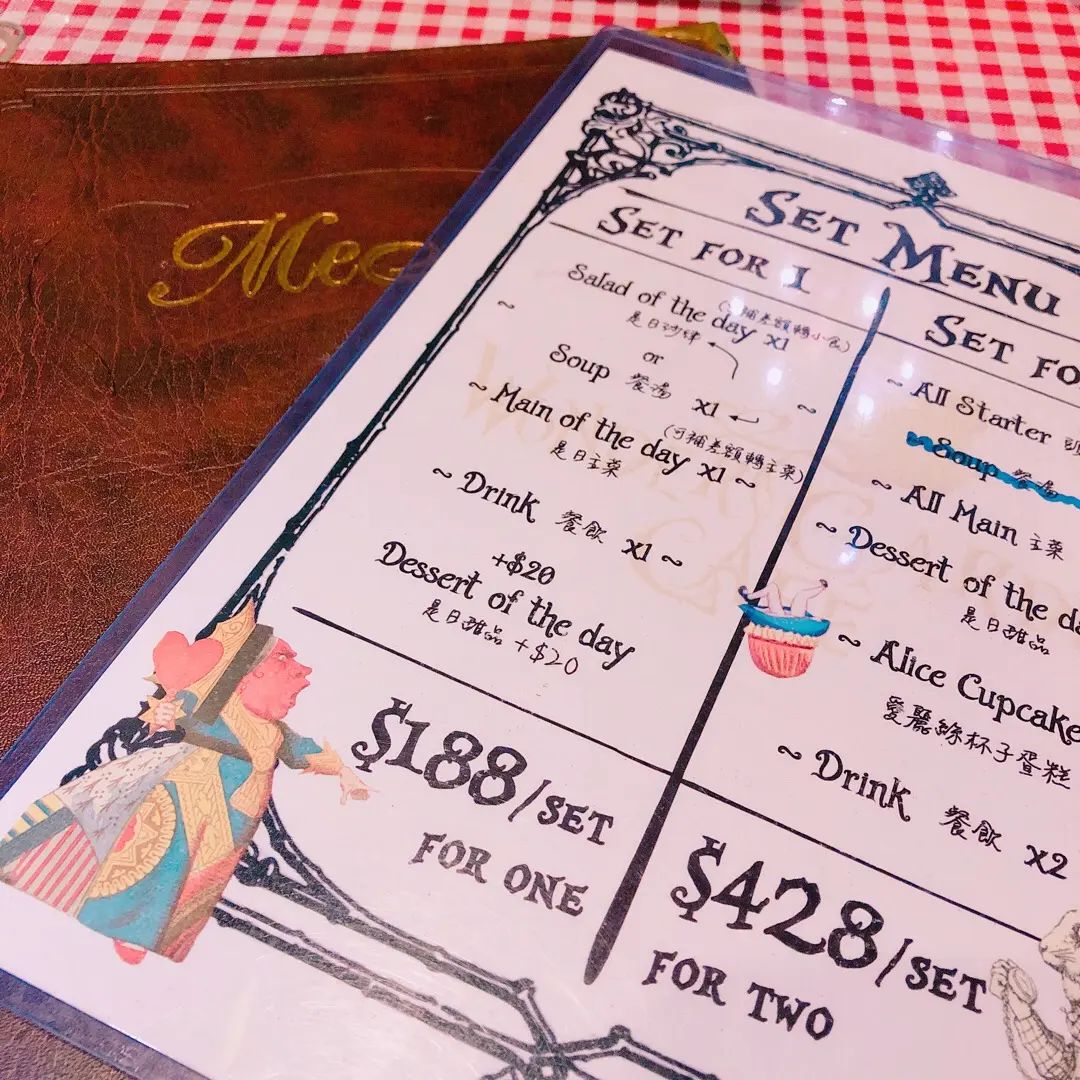 Me
SET MENU
SET FOR 1
Salad of the day x1
(可補差額轉小食)
是日沙律
or
Soup 餐湯 x1
~ Main of the day x1 ~
(可補差額轉主菜)
是日主菜
~ Drink 餐飲 x1 ~
+$20
Dessert of the day
是日甜品 +$20
$188/SET
FOR ONE
SET FO
~ All Starter
Soup 餐湯
~ All Main 主菜
~ Dessert of the da
是日甜品
~ Alice Cupcake
愛麗絲杯子蛋糕
~ Drink 餐飲 x2
$428/SET
FOR TWO